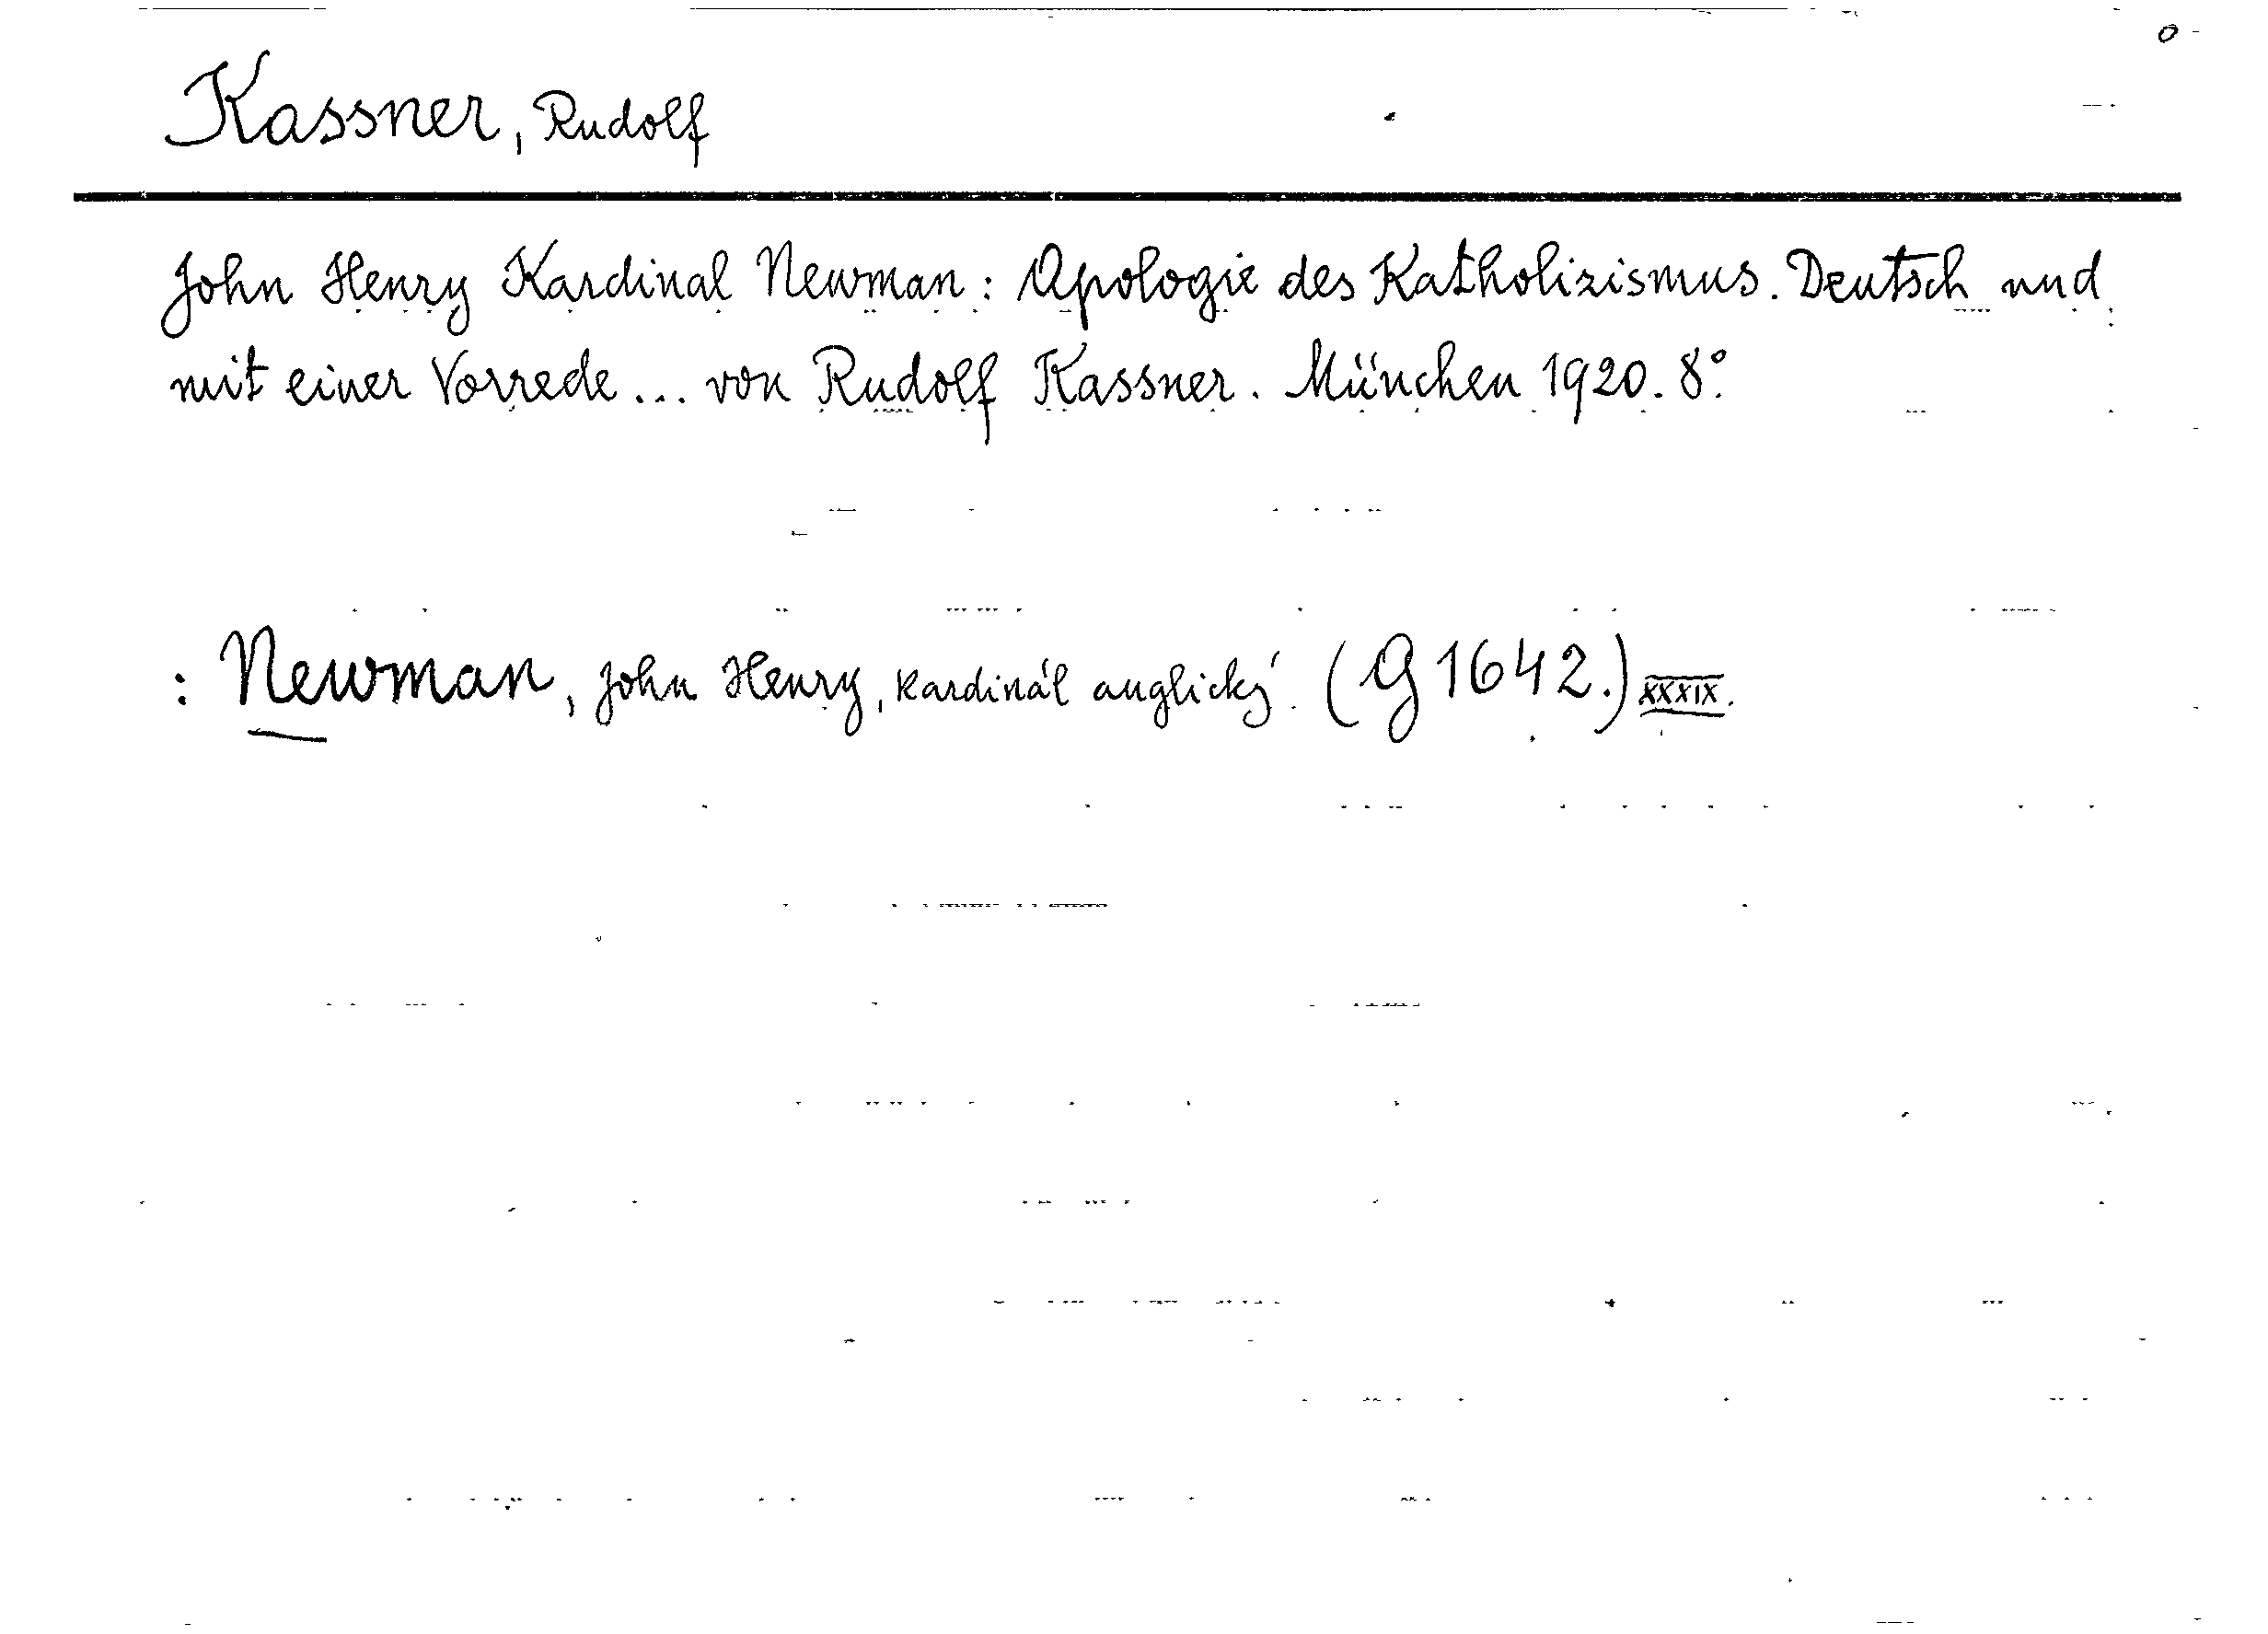 Kassner, Rudolf
John Henry Kardinal Newman: Apologie des Katholizismus. Deutsch und
mit einer Vorrede... von Rudolf Kassner. München 1920. 8°.
: Newman, John Henry, kardinál anglický. (G 1642.) XXXIX.